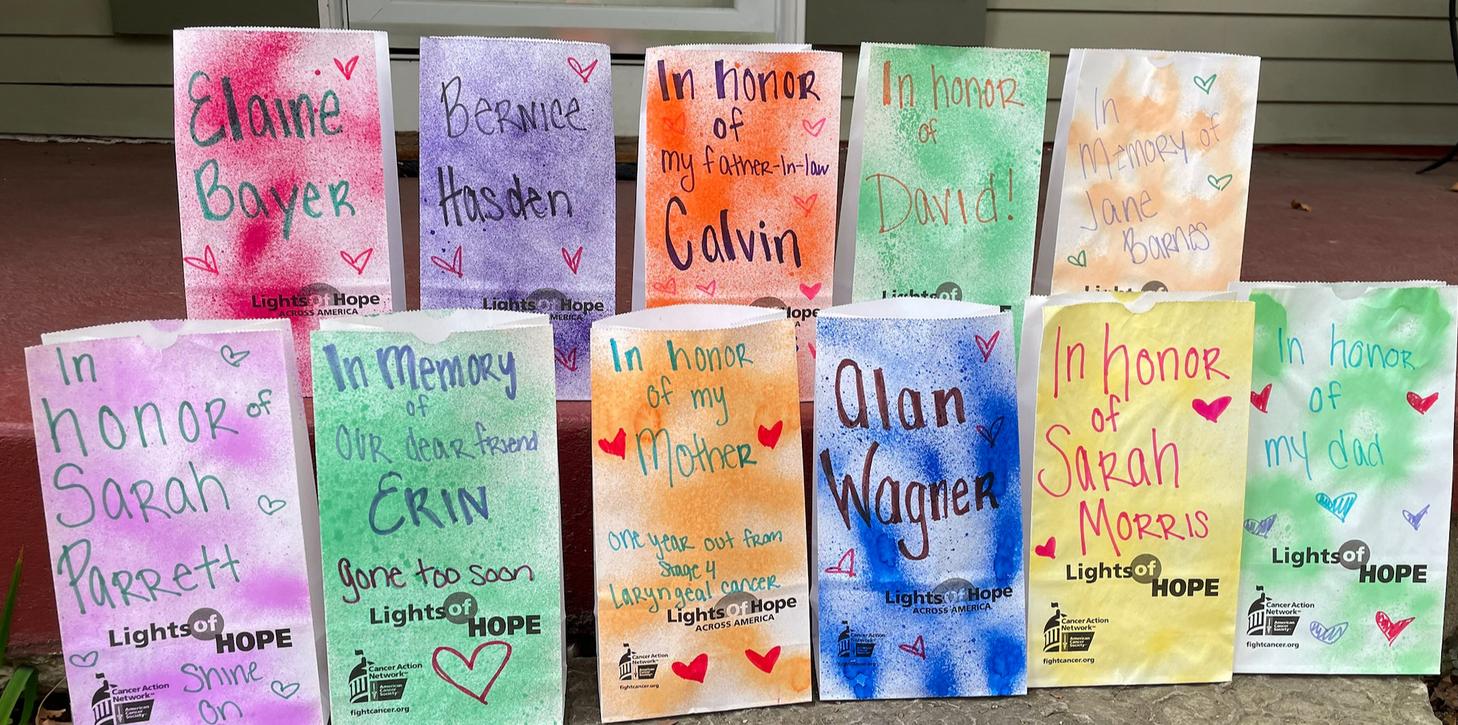 Elaine
Bayer
Lights of Hope
ACROSS AMERICA
Bernice
Hasden
Lights of Hope
AMERICA
In honor
of
my father-in-law
Calvin
In honor
of
David!
Lights of
In
Memory of
Jane
Barnes
In
honor of
Sarah
Parrett
Lights of HOPE
Shine
On
Cancer Action
Network
American
Cancer
Society
In Memory
of
OUR dear friend
ERIN
gone too soon
Lights of HOPE
Cancer Action
Network
American
Cancer
Society
fightcancer.org
In honor
of my
Mother
one year out from
Stage 4
Laryngeal cancer
Lights of Hope
ACROSS AMERICA
Cancer Action
Network
American
Cancer
Society
fightcancer.org
Alan
Wagner
Lights of Hope
ACROSS AMERICA
Cancer Action
Network
In honor
of
Sarah
Morris
Lights of HOPE
Cancer Action
Network
American
Cancer
Society
fightcancer.org
In honor
of
my dad
Lights of HOPE
Cancer Action
Network
American
Cancer
Society
fightcancer.org